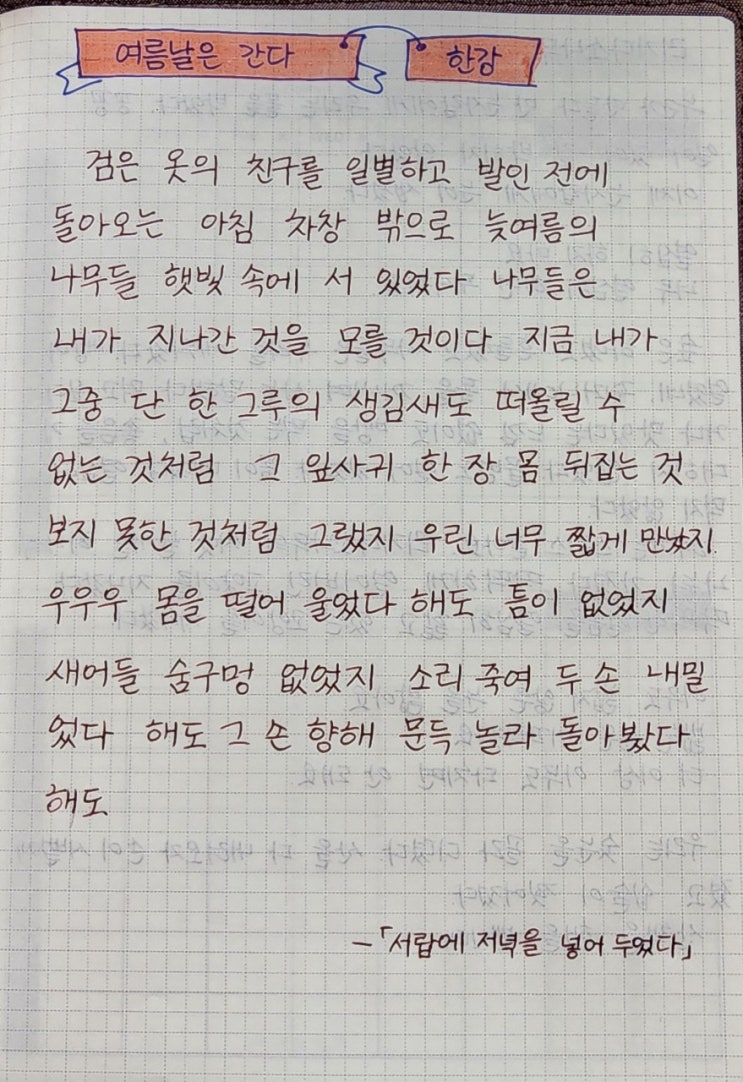 여름날은 간다 한강
검은 옷의 친구를 일별하고 발인 전에
돌아오는 아침 차창 밖으로 늦여름의
나무들 햇빛 속에 서 있었다 나무들은
내가 지나간 것을 모를 것이다 지금 내가
그중 단 한 그루의 생김새도 떠올릴 수
없는 것처럼 그 잎사귀 한 장 몸 뒤집는 것
보지 못한 것처럼 그랬지 우린 너무 짧게 만났지
우우우 몸을 떨어 울었다 해도 틈이 없었지
새어들 숨구멍 없었지 소리 죽여 두 손 내밀
었다 해도 그 손 향해 문득 놀라 돌아봤다
해도
-「서랍에 저녁을 넣어 두었다」